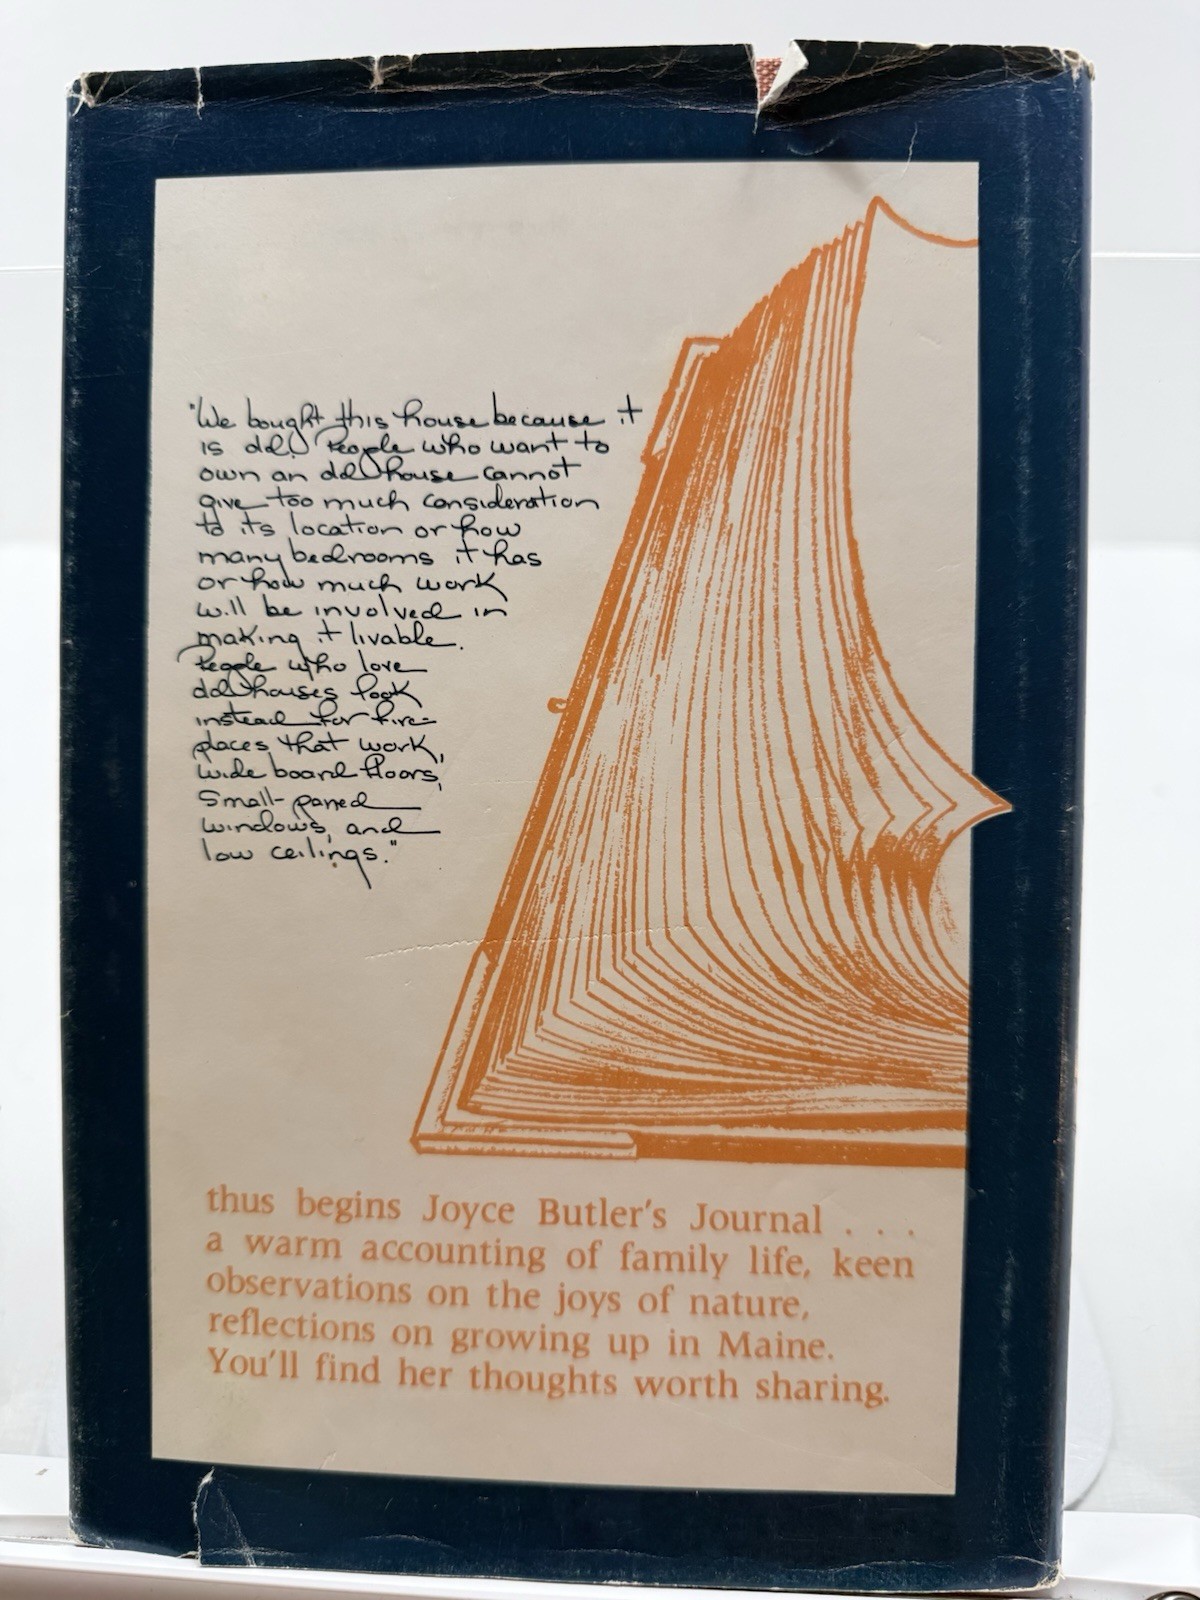 "We bought this house because it
is old. People who want to
own an old house cannot
give too much consideration
to its location or how
many bedrooms it has
or how much work
will be involved in
making it livable.
People who love
old houses look
instead for fire-
places that work,
wide board floors,
small-paned
windows, and
low ceilings."
thus begins Joyce Butler's Journal . . .
a warm accounting of family life, keen
observations on the joys of nature,
reflections on growing up in Maine.
You'll find her thoughts worth sharing.